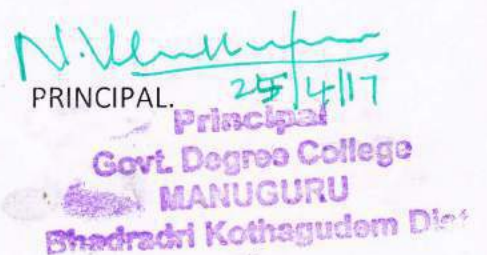 PRINCIPAL.
25/4/17
Principal
Govt. Degree College
MANUGURU
Bhadradri Kothagudem Dist